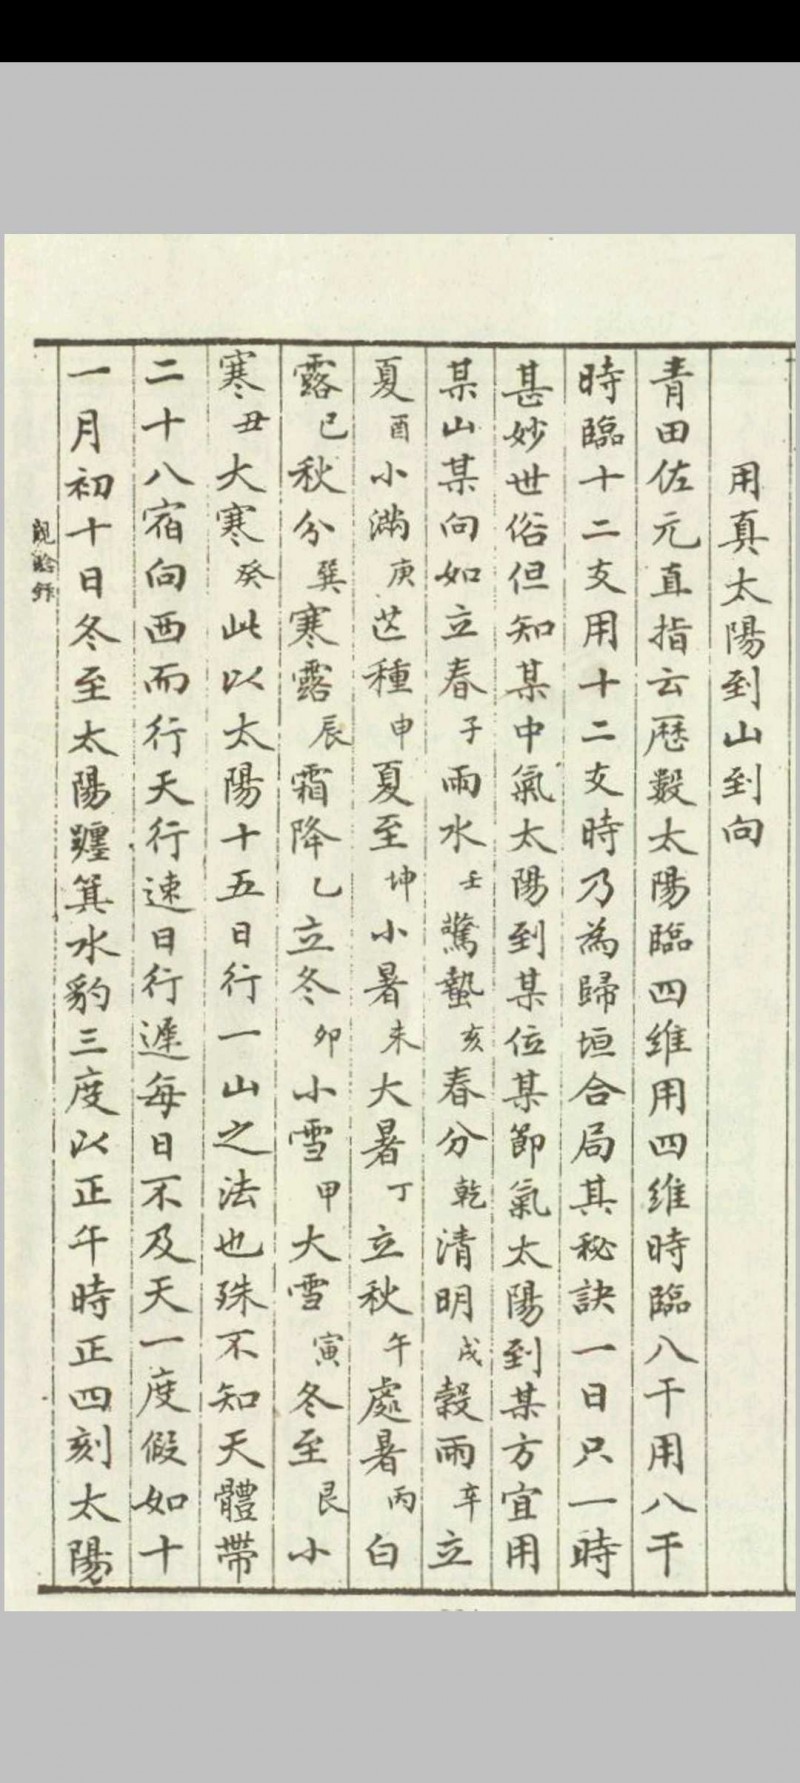 用真太陽到山到向
青田佐元直指云歷數太陽臨四維用四維時臨八干用八干
時臨十二支用十二支時乃為歸垣合局其秘訣一日只一時
甚妙世俗但知某中氣太陽到某位某節氣太陽到某方宜用
某山某向如立春子雨水壬驚蟄亥春分乾清明戌穀雨辛立
夏酉小滿庚芒種申夏至坤小暑未大暑丁立秋午處暑丙白
露巳秋分巽寒露辰霜降乙立冬卯小雪甲大雪寅冬至艮小
寒丑大寒癸此以太陽十五日行一山之法也殊不知天體帶
二十八宿向西而行天行速日行遲每日不及天一度假如十
一月初十日冬至太陽躔箕水豹三度以正午時正四刻太陽